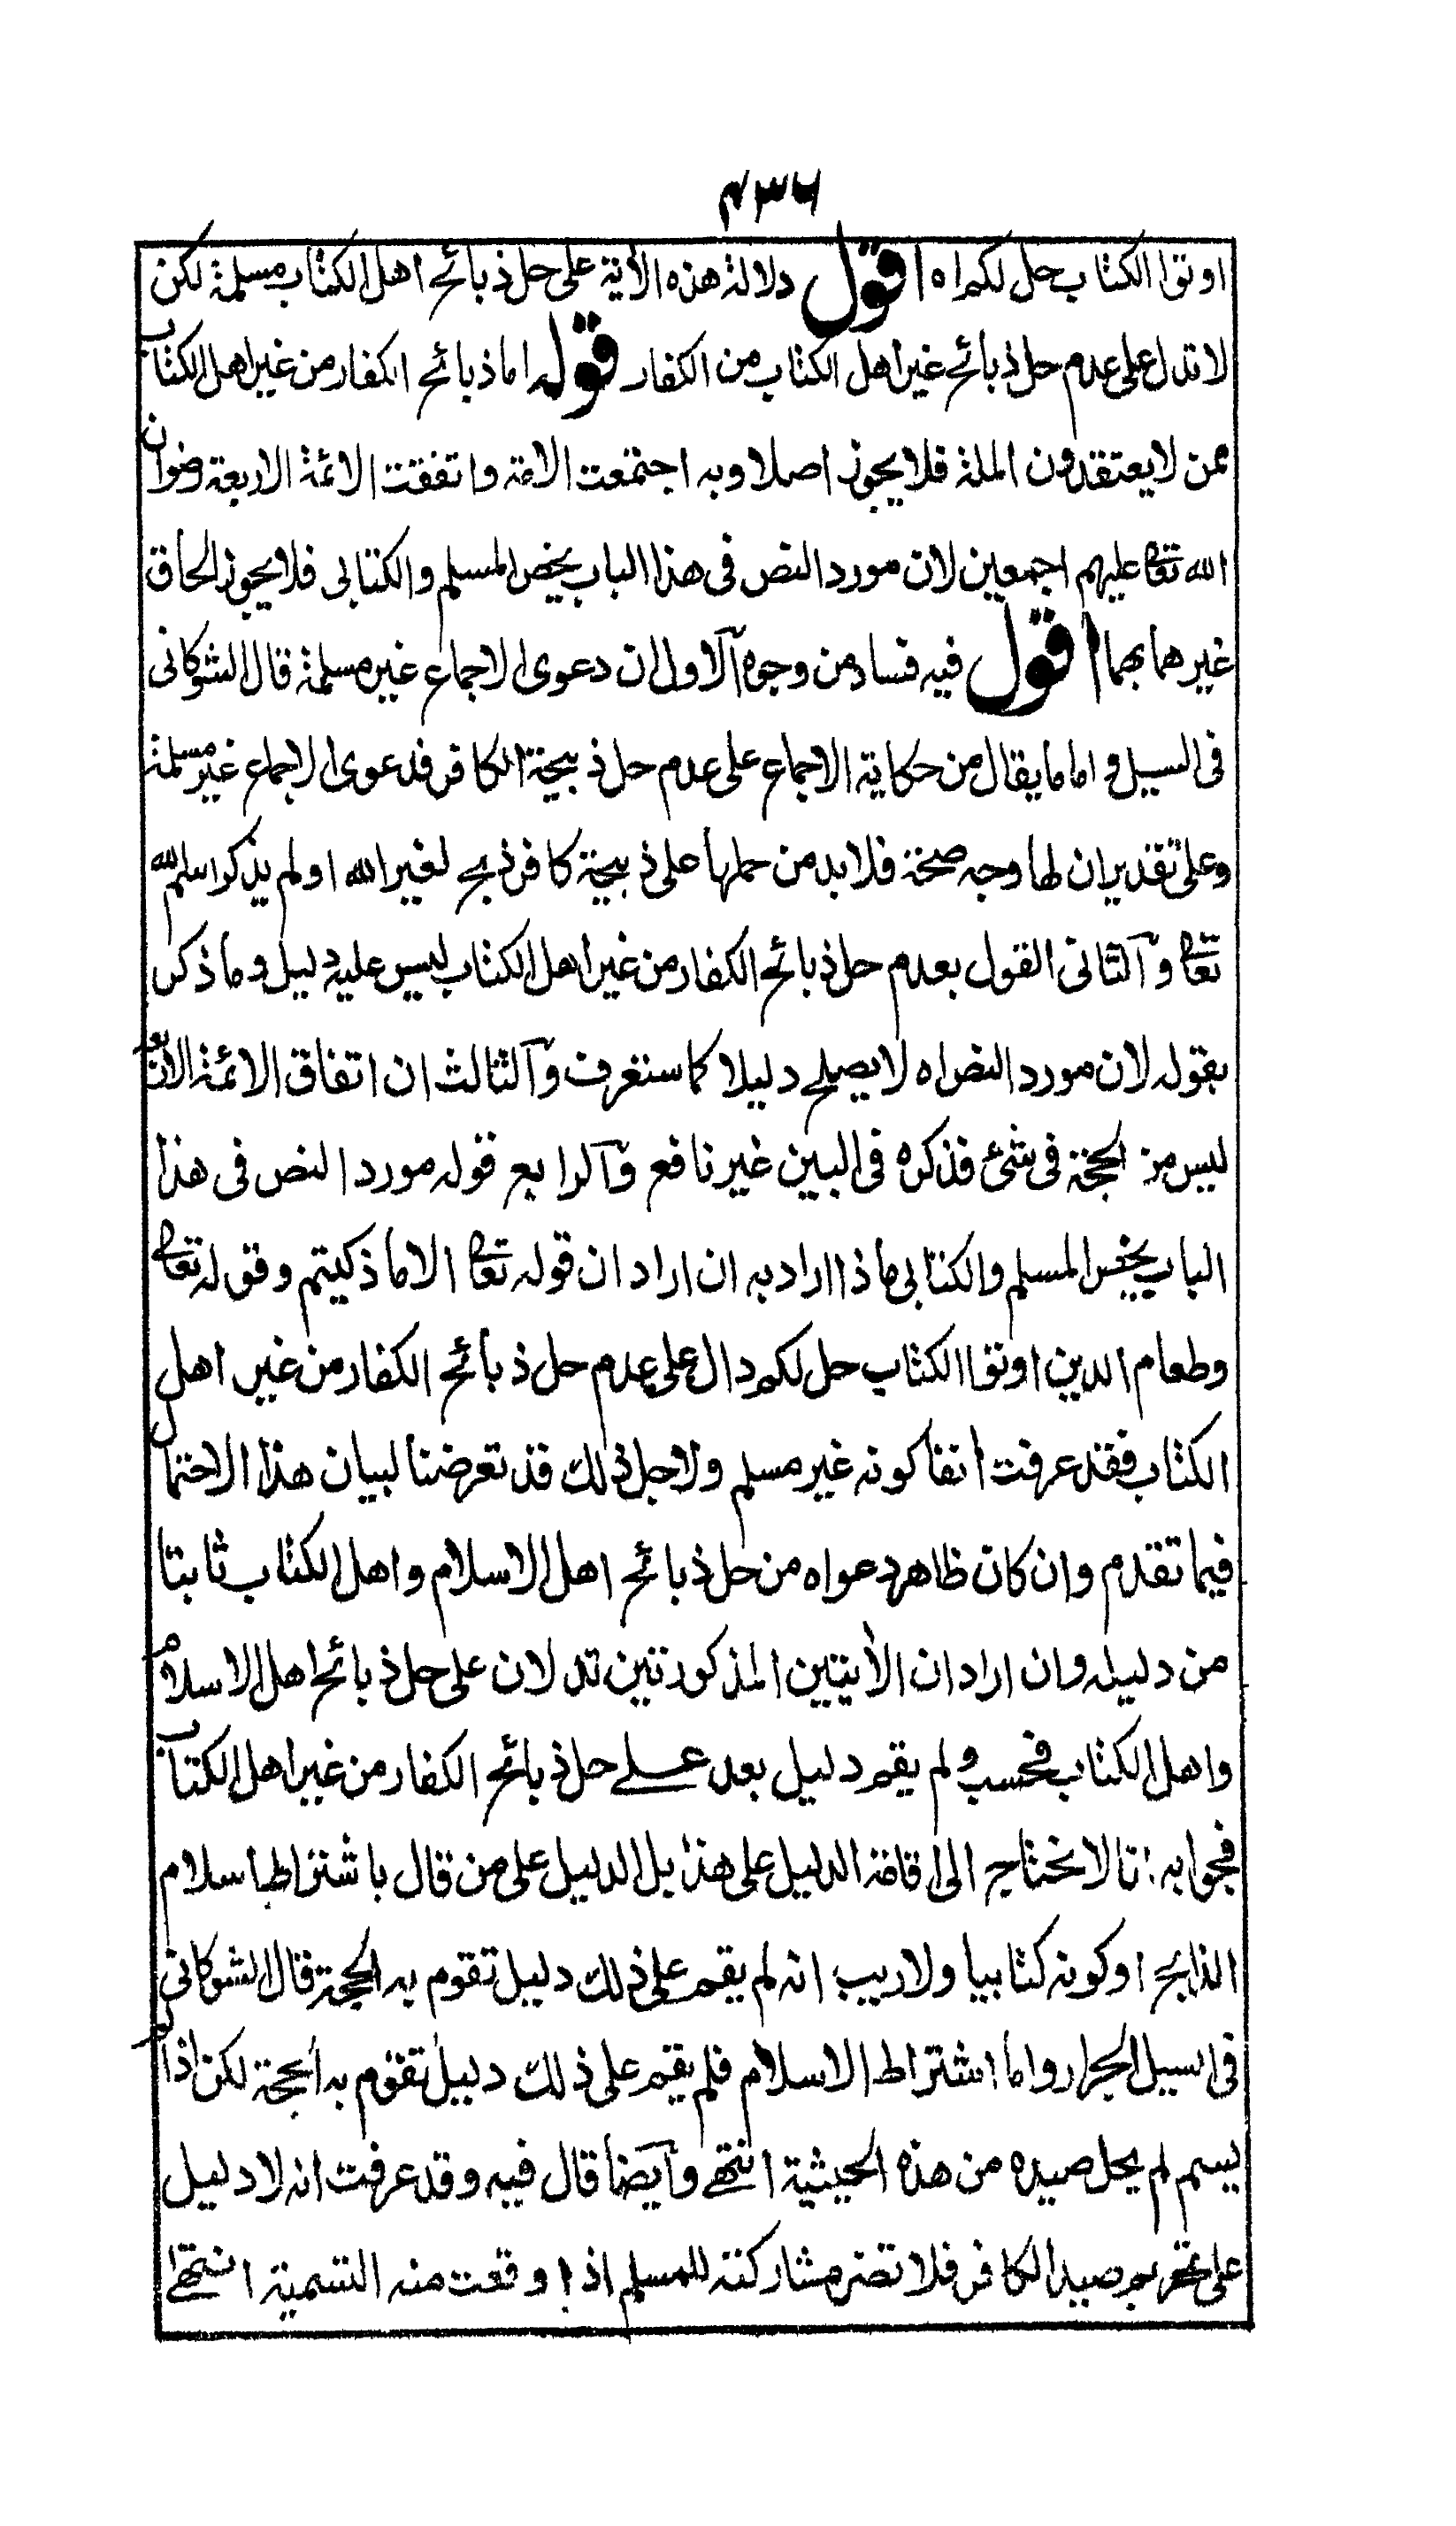 ۴۳۶
اوتوا الكتاب حل لكم اه اقول دلالة هذه الأية على حل ذبائح اهل الكتاب مسلمة لكن
لا تدل على عدم حل ذبائح غير اهل الكتاب من الكفار قوله اما ذبائح الكفار من غير اهل الكتاب
ممن لا يعتقدون الملة فلا يجوز اصلا وبه اجتمعت الامة واتفقت الائمة الاربعة رضوان
الله تعالى عليهم اجمعين لان مورد النص فى هذا الباب يخص المسلم والكتابى فلا يجوز الحاق
غيرهما بهما اقول فيه فساد من وجوه الاول ان دعوى الاجماع غير مسلمة قال الشوكانى
فى السيل واما ما يقال من حكاية الاجماع على عدم حل ذبيحة الكافر فدعوى الاجماع غير مسلمة
وعلى تقدير ان لها وجه صحة فلا بد من حملها على ذبيحة كافر ذبح لغير الله او لم يذكر اسم الله
تعالى والثانى القول بعدم حل ذبائح الكفار من غير اهل الكتاب ليس عليه دليل وما ذكر
بقوله لان مورد النص اه لا يصلح دليلا كما ستعرف والثالث ان اتفاق الائمة الاربعة
ليس من الحجة فى شئ فذكره فى البين غير نافع والرابع قوله مورد النص فى هذا
الباب يخص المسلم والكتابى ماذا اراد به ان اراد ان قوله تعالى الا ما ذكيتم وقوله تعالى
وطعام الذين اوتوا الكتاب حل لكم دال على عدم حل ذبائح الكفار من غير اهل
الكتاب فقد عرفت أنفا كونه غير مسلم ولاجل ذلك قد تعرضنا لبيان هذا الاحتمال
فيما تقدم وان كان ظاهر دعواه من حل ذبائح اهل الاسلام واهل الكتاب ثابتا
من دليله وان اراد ان الأيتين المذكورتين تدلان على حل ذبائح اهل الاسلام
واهل الكتاب فحسب ولم يقم دليل بعد على حل ذبائح الكفار من غير اهل الكتاب
فجوابه انا لا نحتاج الى اقامة الدليل على هذا بل الدليل على من قال باشتراط اسلام
الذابح او كونه كتابيا ولا ريب انه لم يقم على ذلك دليل تقوم به الحجة قال الشوكانى
فى السيل الجرار واما اشتراط الاسلام فلم يقم على ذلك دليل تقوم به الحجة لكن اذا لم
يسم لم يحل صيده من هذه الحيثية انتهى وايضا قال فيه وقد عرفت انه لا دليل
على تحريم صيد الكافر فلا تضر مشاركته للمسلم اذا وقعت منه التسمية انتهى